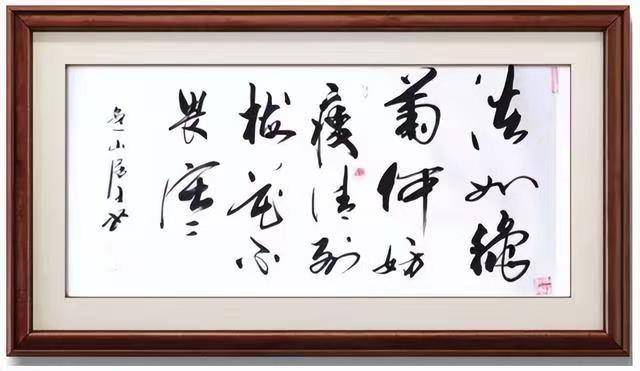 淡如秋
菊何妨
瘦清到
梅花不
畏寒
山居士书